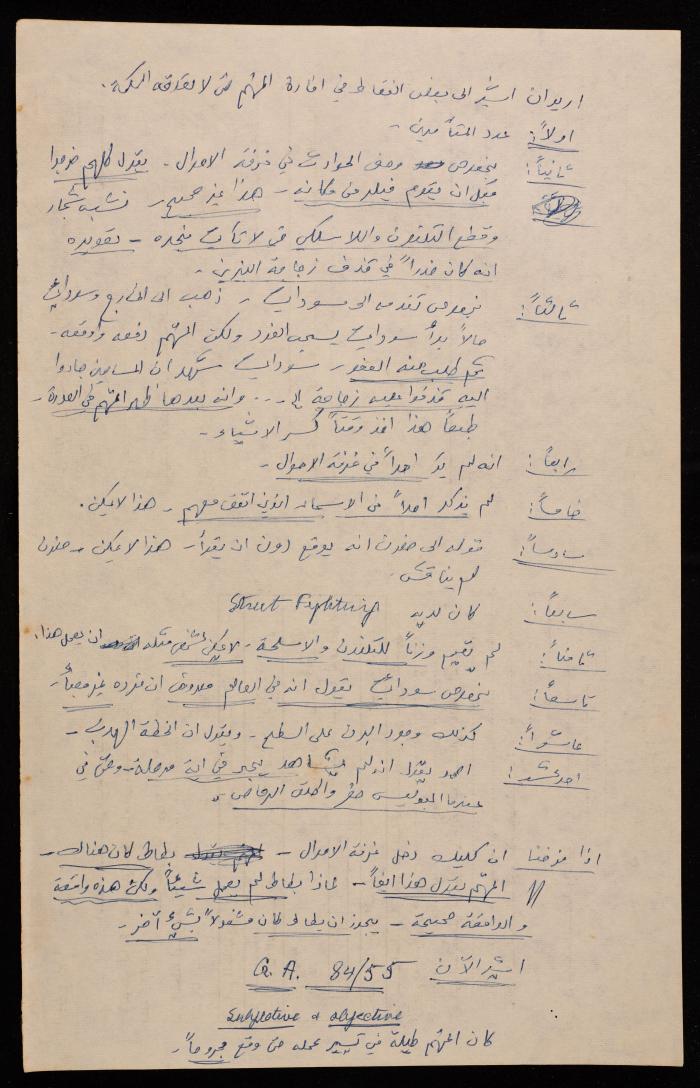 اريد ان اشير الى بعض النقاط في افادة المتهم لا
اولاً: عدد المتآمرين -
ثانياً: بخصوص وصف الحوادث في غرفة الاموال - يقول كلهم خرجوا
قبل ان يقوم فيلد من مكانه - هذا غير صحيح - نشب شجار
وقطع التلفون واللاسلكي لا تأت نجده -
انه كان حذراً في قذف زجاجة البنزين -
ثالثاً: بخصوص تقدمه الى سودابي - ذهب الى الخارج وسودابي
حالاً بدأ سودابي يسحب الفرد ولكن المتهم دفعه واوقعه -
ثم طلب منه العفو - سودابي شهد ان المساجين جاءوا
اليه قذفوا عليه زجاجة الى ... وانه بعدها ظهر المتهم في الصورة -
طبعاً هذا اخذ وقتاً كسر الاشياء -
رابعاً: انه لم ير احداً في غرفة الاموال -
خامساً: لم يذكر احداً من الاسماء الذين اتفق معهم - هذا لا يمكن.
سادساً: قوله الى حضرون انه يوقع دون ان يقرأ - هذا لا يمكن - حضرون
لم يناقش -
سابعاً: كان لديه Street Fighting
ثامناً: لم يقيم وزناً للتلفون والاسلحة - لا يمكن لشخص مثله ان يعمل هذا.
تاسعاً: بخصوص سودابي يقول انه في العالم معروض ان فرده غير معبأ -
عاشراً: كذلك وجود البرن على السطح - ويقول ان الخطة الهرب -
احد عشر: احمد يقول انه لم يشاهد يجبر في اية مرحلة - وحتى في
عندما البوليس حضر واطلق الرصاص -
اذا فرضنا ان كليك دخل غرفة الاموال - بطاط كان هناك -
المتهم يقول هذا ايضاً - لماذا بطاط لم يعمل شيئاً ولكن هذه واقعة
والواقعة صحيحة - يجوز ان بطاط كان مشغولاً بشيء آخر -
اشير الآن C.A. 84/55
subjective & objective
كان المتهم طيلة في تسيير عمله حتى وقع مجروحاً -